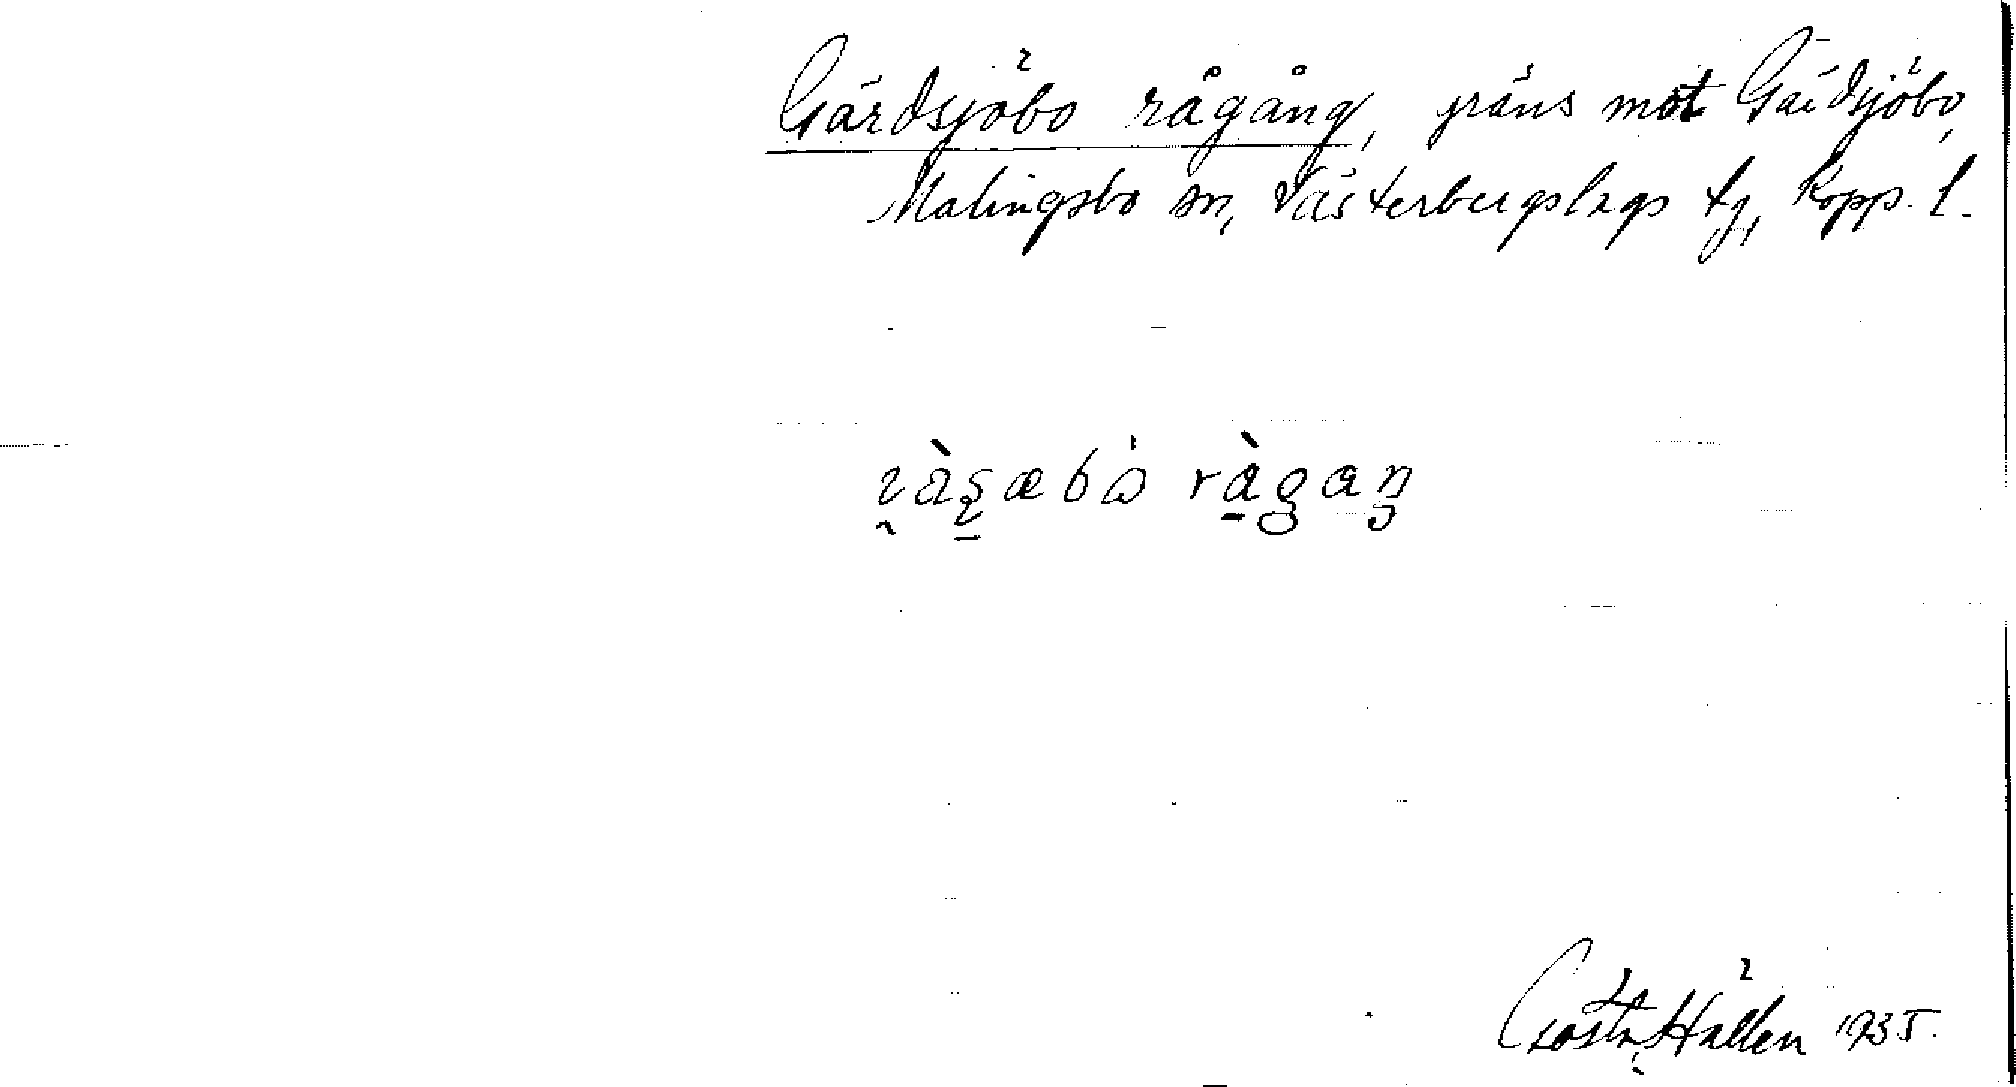 Gärdsjöbo rågång, gräns mot Gärdsjöbo,
Malingsbo sn, Västerbergslags tg, Kopp. l.
rågaŋ
Gösta Hällen 1935.